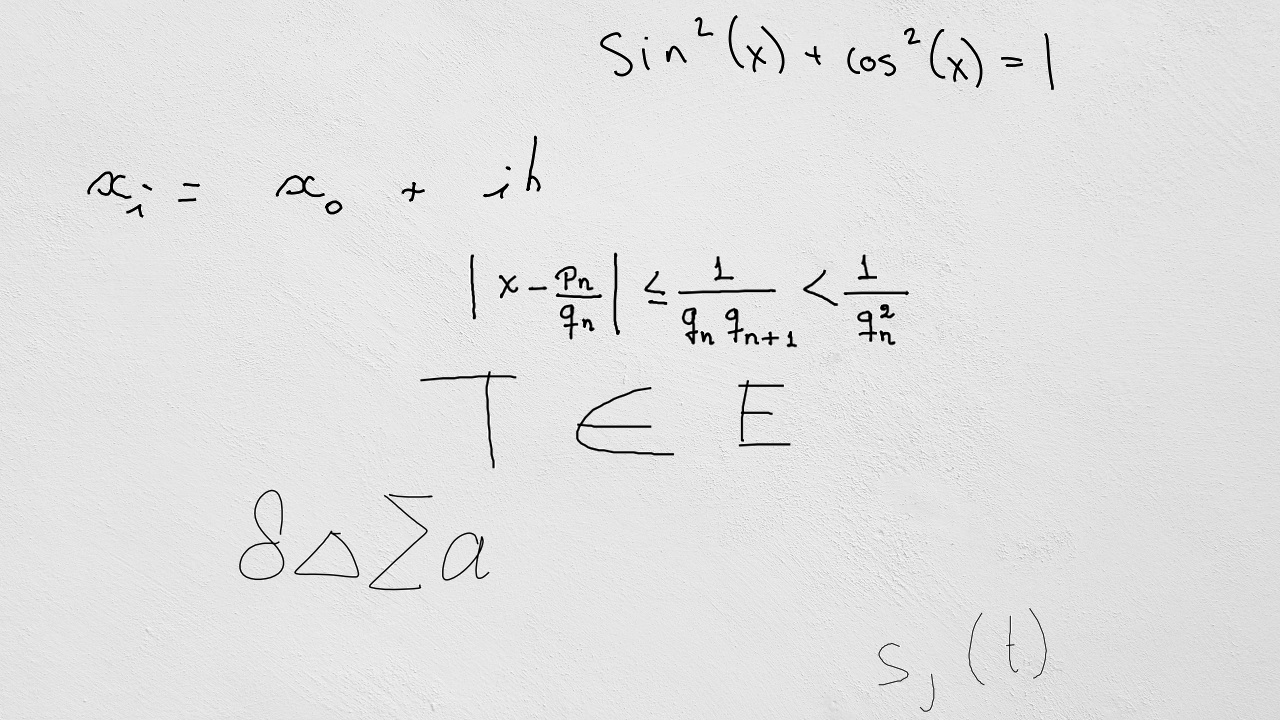 sin²(x) + cos²(x) = 1
xᵢ = x₀ + ih
|x - pₙ/qₙ| ≤ 1/(qₙ qₙ₊₁) < 1/qₙ²
T ∈ E
δΔΣa
sⱼ(t)